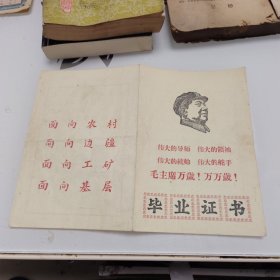 面向农村
面向边疆
面向工矿
面向基层
伟大的导师 伟大的领袖
伟大的统帅 伟大的舵手
毛主席万岁！万万岁！
毕业证书